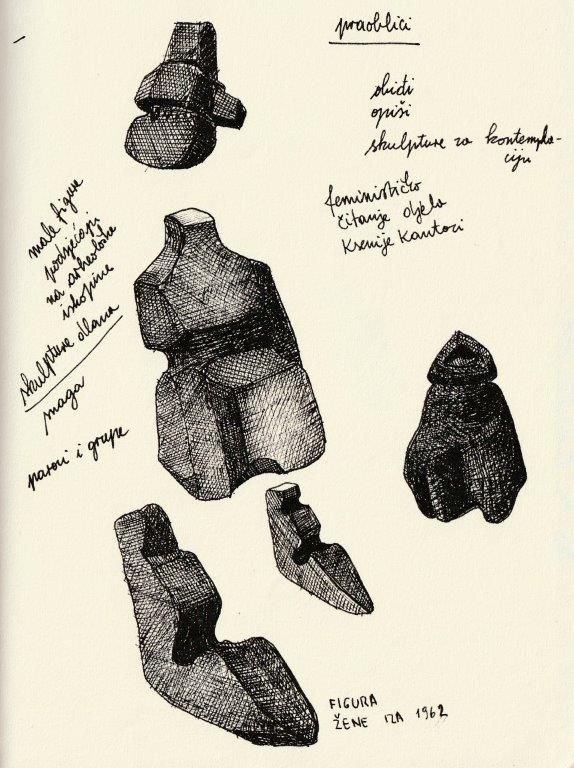 praoblici
obiđi
opiši
skulpture za kontempla-
ciju
feminističko
čitanje djela
Ksenije Kantoci
male figure
podsjećaju
na arheološke
iskopine
skulpture dlana
snaga
parovi i grupe
FIGURA
ŽENE IZA 1962